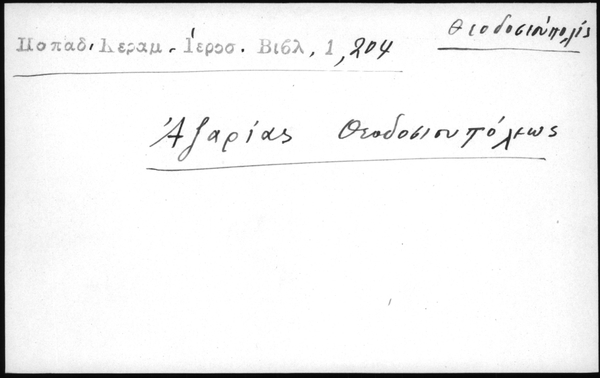 Παπαδ. Κεραμ. Ἱεροσ. Βιβλ. 1, 204
Θεοδοσιούπολις
Ἀζαρίας Θεοδοσιουπόλεως